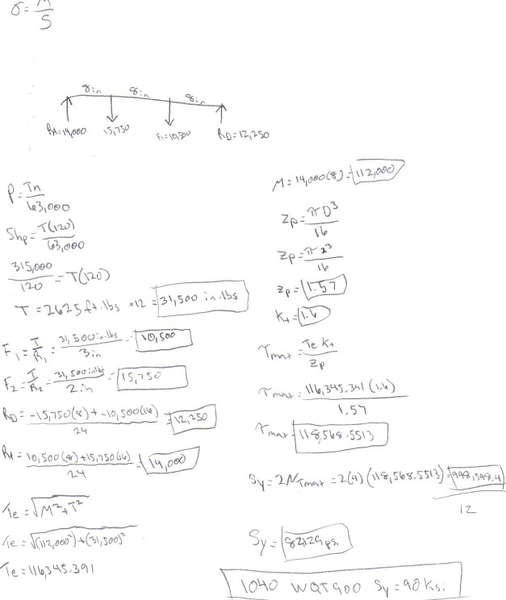 σ = M/S
8in 8in 8in
RA=14,000 15,750 F1=10,500 RD=12,250
P = Tn/63,000
5hp = T(120)/63,000
315,000/120 = T(120)
T = 2625 ft.lbs ×12 = 31,500 in.lbs
F1 = T/R1 = 31,500 in.lbs/3in = 10,500
F2 = T/R2 = 31,500 in.lbs/2in = 15,750
RD = -15,750(8) + -10,500(16)/24 = 12,250
RA = 10,500(8) + 15,750(16)/24 = 14,000
Te = √M²+T²
Te = √(112,000²)+(31,500)²
Te = 116,345.391
M = 14,000(8) = 112,000
Zp = πD³/16
Zp = π2³/16
Zp = 1.57
Kt = 1.6
τmax = Te Kt/Zp
τmax = 116,345.391(1.6)/1.57
τmax = 118,568.5513
Sy = 2Nτmax = 2(4)(118,568.5513) = 948,548.4
12
Sy = psi
1040 WQT900 Sy = 90 Ksi